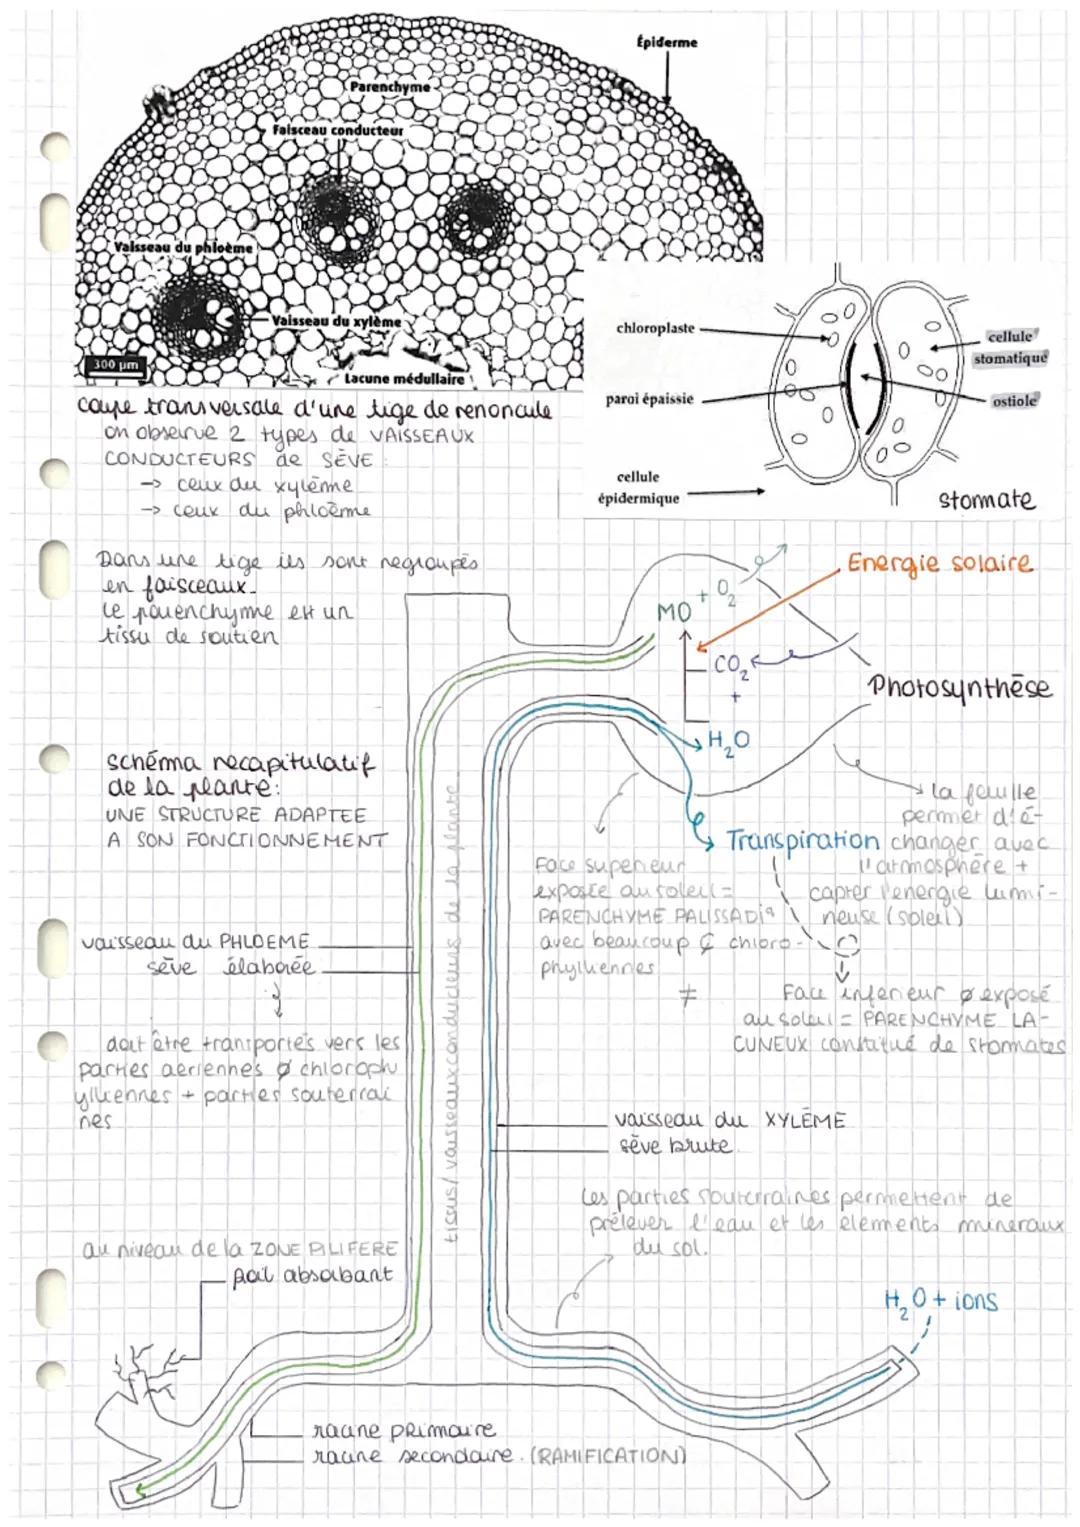 Épiderme
Parenchyme
Faisceau conducteur
Vaisseau du phloème
Vaisseau du xylème
300 µm
Lacune médullaire
chloroplaste
cellule
stomatique
paroi épaissie
ostiole
cellule
épidermique
stomate
coupe transversale d'une tige de renoncule
on observe 2 types de VAISSEAUX
CONDUCTEURS de SÈVE :
→ ceux du xylème
→ ceux du phloème
Dans une tige ils sont regroupés
en faisceaux.
Le parenchyme est un
tissu de soutien
Energie solaire
MO + O₂
CO₂
+
H₂O
Photosynthèse
schéma récapitulatif
de la plante:
UNE STRUCTURE ADAPTEE
A SON FONCTIONNEMENT
la feuille
permet d'é-
changer avec
l'atmosphère +
capter l'energie lumi-
neuse (soleil)
Transpiration
Face superieur
exposée au soleil =
PARENCHYME PALISSADIQ
avec beaucoup ₵ chloro-
phylliennes
≠
Face inferieur ø exposé
au soleil = PARENCHYME LA-
CUNEUX constitué de stomates
vaisseau du PHLOEME
sève élaborée
doit être transportés vers les
parties aeriennes ø chloroph
ylliennes + parties souterrai
nes
tissus/vaisseaux conducteurs de la plante
vaisseau du XYLÈME
sève brute
Les parties souterraines permettent de
prélever l'eau et les elements mineraux
du sol.
au niveau de la ZONE PILIFERE
poil absorbant
H₂O + ions
racine primaire
racine secondaire. (RAMIFICATION)